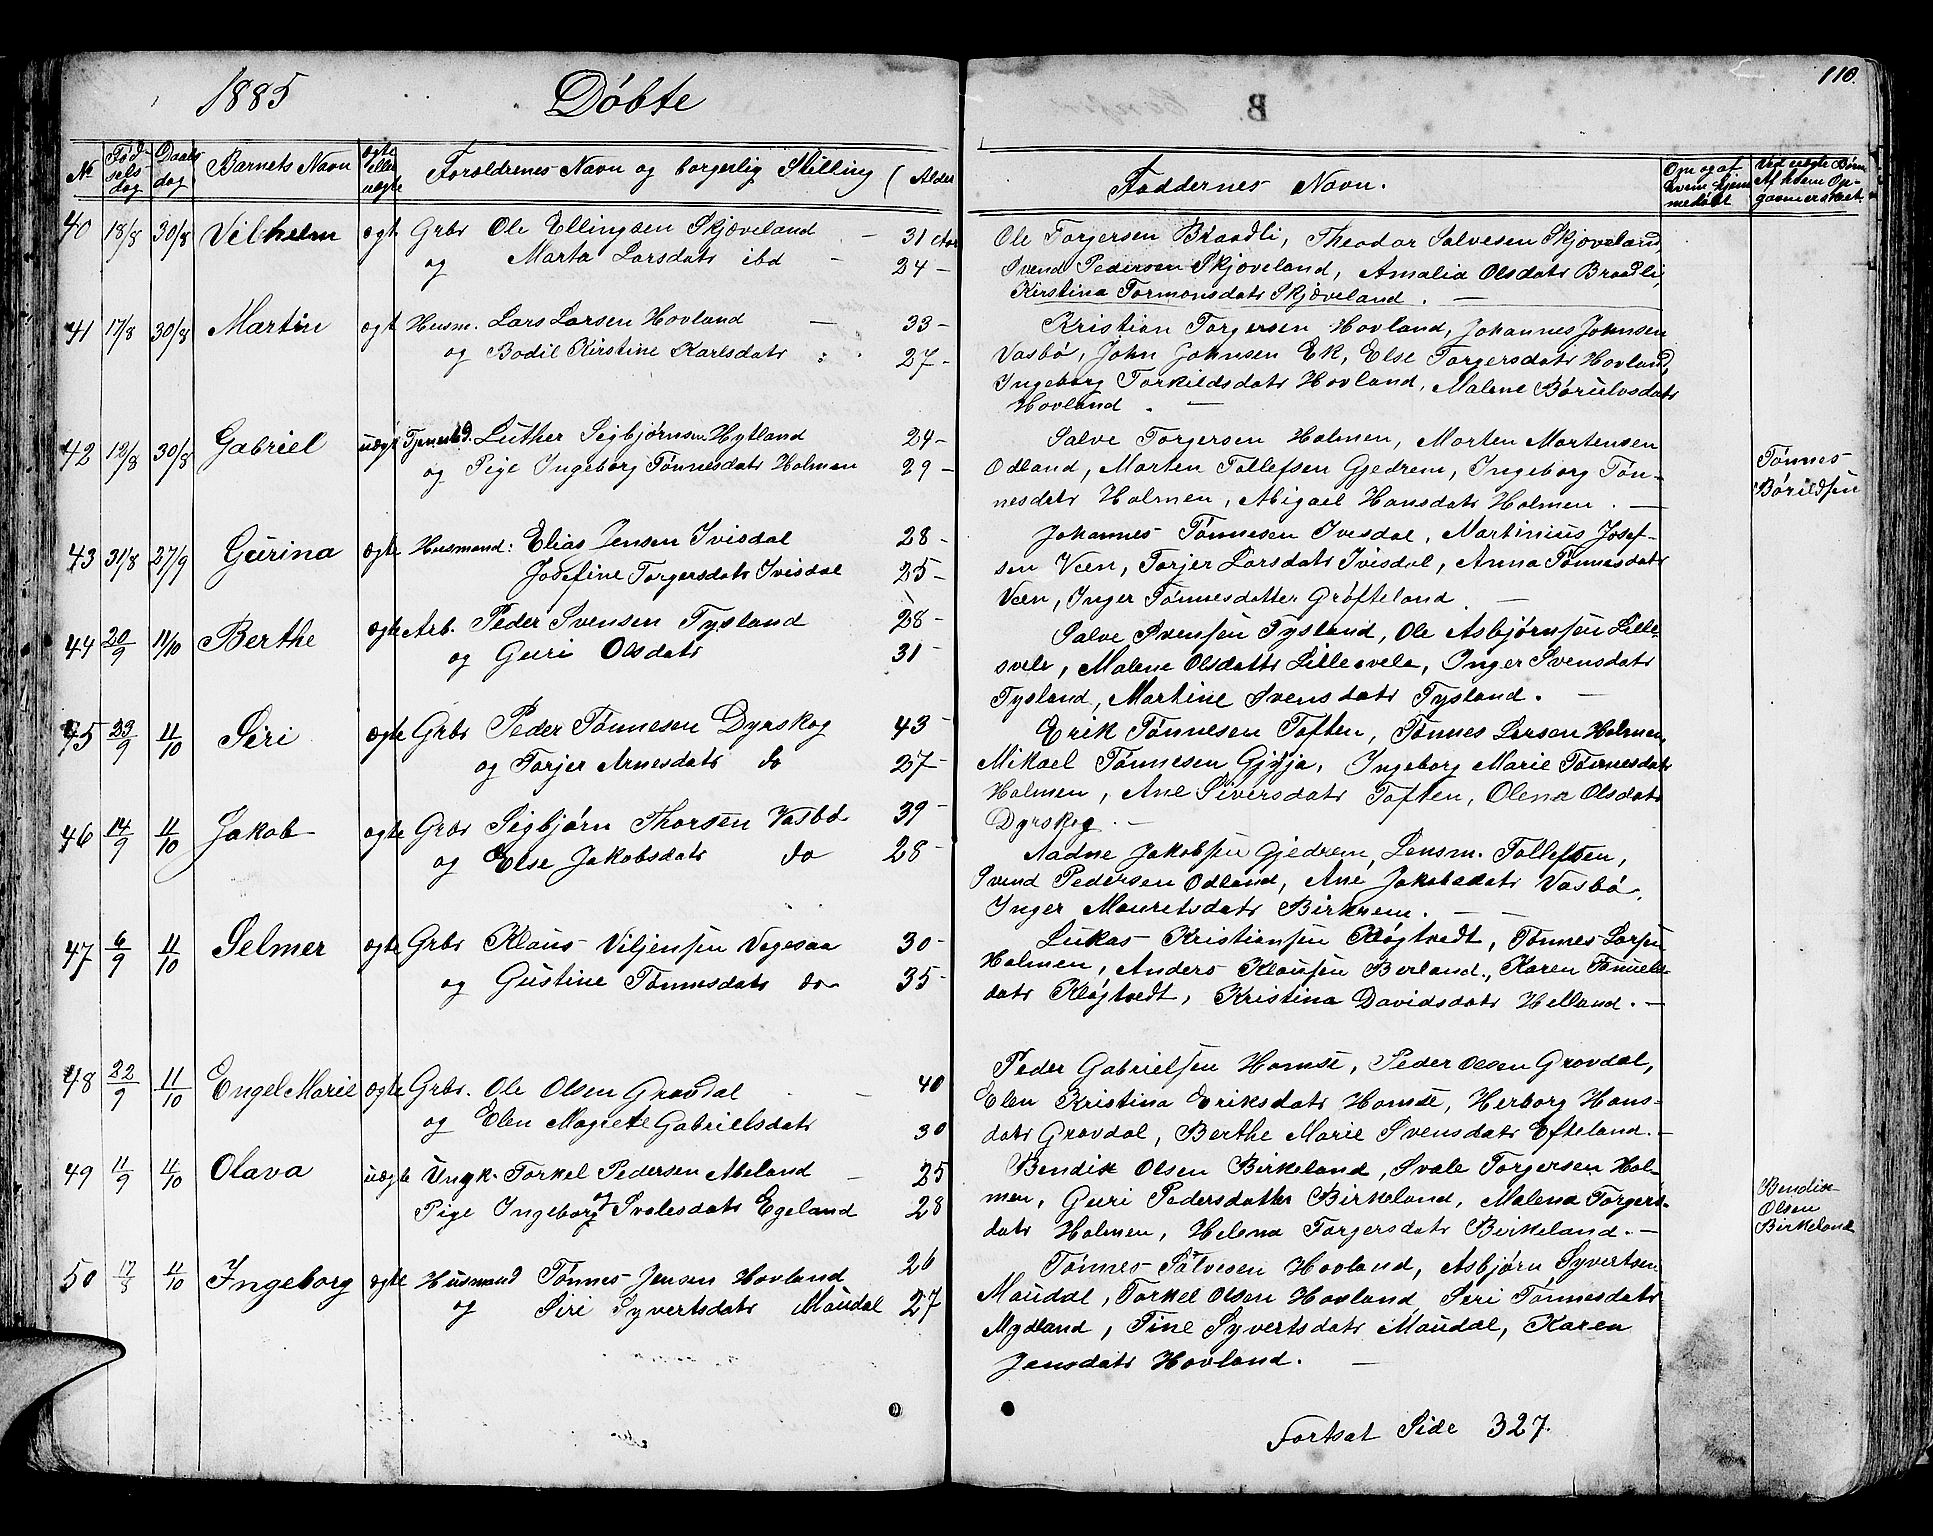 1885 Döbte
110.
No Fødselsdag Daabsdag Barnets Navn ægte eller uægte Forældrenes Navn og borgerlig Stilling (Alder
Faddernes Navn.
40 18/8 30/8 Vilhelm ægt Grbr Ole Ellingsen Skjæveland - 31 Aar
og Marta Larsdatr ibd - 24 -
Ole Torgersen Braadli, Theodor Salvesen Skjæveland,
Svend Pedersen Skjæveland, Amalia Olsdatr Braadli,
Kirstina Tormonsdatr Skjæveland. -
41 17/8 30/8 Martin ægt Husm. Lars Larsen Hovland - 33 -
og Bodil Kirstine Karlsdatr 27 -
Kristian Torgersen Hovland, Johannes Johnsen
Vasbö, John Johnsen Ek, Else Torgersdatr Hovland,
Ingeborg Torkildsdatr Hovland, Malene Börulvsdatr
Hovland. -
42 12/8 30/8 Gabriel uægt Tjenestd. Luther Sigbjørnsen Hytland 24 -
og Pige Ingeborg Tönnesdatr Holmen 29 -
Salve Torgersen Holmen, Morten Mortensen
Odland, Morten Tollefsen Gjedrem, Ingeborg Tön-
nesdatr Holmen, Abigael Hansdatr Holmen. -
Tönnes
Börildsen
43 31/8 27/9 Gurina ægte Husmand: Elias Jensen Ivisdal 28 -
Josefine Torgersdatr Ivisdal 25 -
Johannes Tönnesen Ivesdal, Martinius Josef-
sen Veen, Torjer Larsdatr Ivisdal, Anna Tönnesdatr
Veen, Inger Tönnesdatter Gröfteland. -
44 20/9 11/10 Berthe ægte Arb. Peder Svensen Tysland 28 -
og Guri Olsdatr 31 -
Salve Svensen Tysland, Ole Asbjørnsen Lille-
svele, Malene Olsdattr Lillesvele, Inger Svensdatr
Tysland, Martine Svensdatr Tysland. -
45 23/9 11/10 Siri ægte Grbr Peder Tönnesen Dyrskog 43 -
og Torjer Arnesdatr do 27 -
Erik Tönnesen Toften, Tönnes Larsen Holmen,
Mikael Tönnesen Gyja, Ingeborg Marie Tönnesdatr
Holmen, Ane Siversdatr Toften, Olena Olsdatr
Dyrskog. -
46 14/9 11/10 Jakob ægte Grbr Sigbjørn Thorsen Vasbö 39 -
og Else Jakobsdatr do 28 -
Aadne Jakobsen Gjedrem, Lensm. Tollefsen,
Svend Pedersen Odland, Ane Jakobsdatr Vasbö,
Inger Mauretsdatr Birkrem. - -
47 6/9 11/10 Selmer ægte Grbr Klaus Viljensen Vegesaa 30 -
og Gustine Tönnesdatr do 35 -
Lukas Kristiansen Klögtvedt, Tönnes Larsen
Holmen, Anders Klausen Berland, Karen Tönnes-
datr Klögtvedt, Kristina Davidsdatr Helland. -
48 22/9 11/10 Engel Marie ægte Grbr. Ole Olsen Gravdal - 40
og Elen Magrete Gabrielsdatr 30
Peder Gabrielsen Hamse, Peder Olsen Gravdal,
Elen Kristina Eriksdatr Homse, Herborg Hans-
datr Gravdal, Berthe Marie Svensdatr Efteland. -
49 11/9 11/10 Olava uægte Ungk. Torkel Pedersen Meland - 25
Pige Ingeborg Svalesdatr Egeland 28
Bendik Olsen Birkeland, Svale Torgersen Hol-
men, Guri Pedersdatter Birkeland, Malena Torgers-
datr Holmen, Helena Torgersdatr Birkeland. -
Bendik
Olsen
Birkeland
50 11/10 Ingeborg ægte Husmand Tönnes Jensen Hovland 26
og Siri Syvertsdatr Maudal 27
Tönnes Salvesen Hovland, Asbjørn Syvertsen
Maudal, Torkel Olsen Hovland, Seri Tönnesdatr
Mydland, Tine Syvertsdatr Maudal, Karen
Jensdatr Hovland. -
Fortsat Side 327.